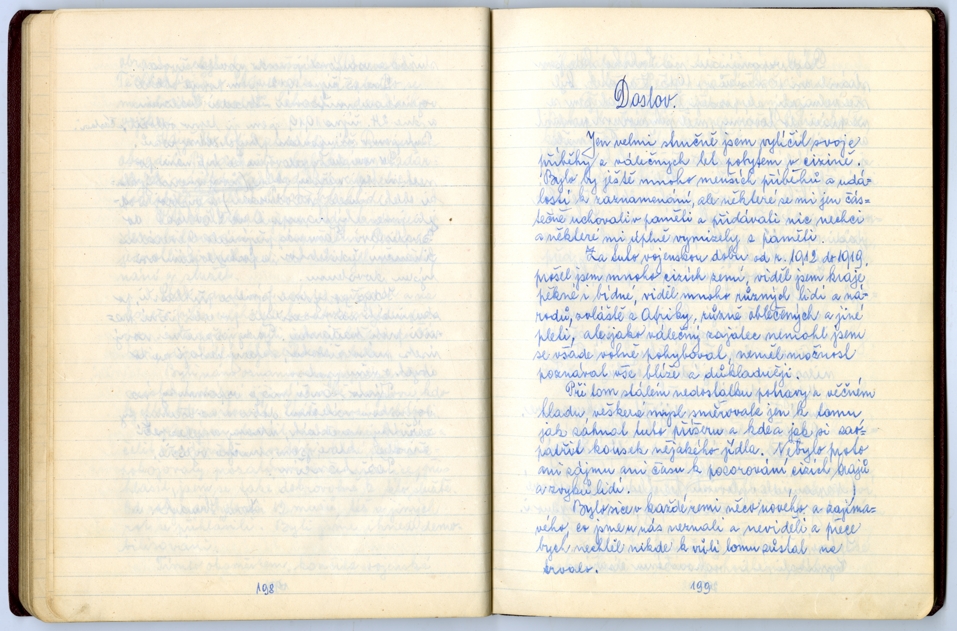 Doslov.
Jen velmi stručně jsem vylíčil svoje
příběhy z válečných let pobytem v cizině.
Bylo by ještě mnoho menších příběhů a udá-
lostí k zaznamenání, ale některé se mi jen čás-
tečně uchovali v paměti a přidávati nic nechci
a některé mi úplně vymizely z paměti.
Za tuto vojenskou dobu od r. 1912 do 1919.
prošel jsem mnoho cizích zemí, viděl jsem kraje
pěkné i bídné, viděl mnoho různých lidí a ná-
rodů, zvláště z Afriky, různě oblečených a jiné
pleti, ale jako válečný zajatec nemohl jsem
se všade volně pohybovat, neměl možnost
poznávat vše blíže a důkladněji.
Při tom stálém nedostatku potravy a věčném
hladu veškerá mysl směřovala jen k tomu
jak zahnat tuto příšeru a kde a jak si zao-
patřit kousek nějakého jídla. Nebylo proto
ani zájmu ani času k pozorování cizích krajů
a zvyků lidí.
Bylo sice v každé zemi něco nového a zajíma-
vého, co jsme u nás neznali a neviděli a přece
bych nechtěl nikde k vůli tomu zůstat na
trvalo.
198
199